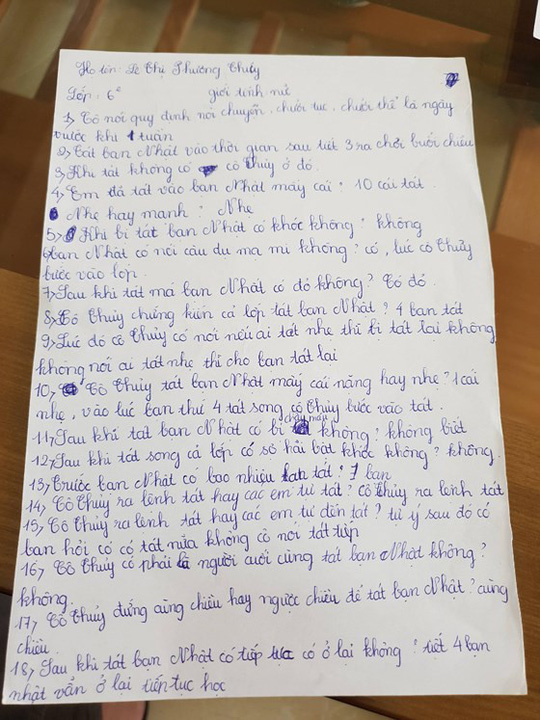 Họ tên: Lê Thị Phương Thúy
Lớp: 6² giới tính nữ
1, Cô nói quy định nói chuyện, chửi tục, chửi thề là ngày
trước khi 1 tuần
2, Tát bạn Nhật vào thời gian sau tiết 3 ra chơi buổi chiều
3, Khi tát không có cô Thủy ở đó.
4, Em đã tát vào bạn Nhật mấy cái? 10 cái tát.
Nhẹ hay mạnh? Nhẹ
5, Khi bị tát bạn Nhật có khóc không? không
6, bạn Nhật có nói câu đu ma mi không? có, lúc cô Thủy
bước vào lớp.
7, Sau khi tát má bạn Nhật có đỏ không? Có đỏ
8, Cô Thủy chứng kiến cả lớp tát bạn Nhật? 4 bạn tát
9, Lúc đó cô Thủy có nói nếu ai tát nhẹ thì bị tát lại không
không nói ai tát nhẹ thì cho bạn tát lại
10, Cô Thủy tát bạn Nhật mấy cái nặng hay nhẹ? 1 cái
nhẹ, vào lúc bạn thứ 4 tát song cô Thủy bước vào tát.
11, Sau khi tát bạn Nhật có bị chảy máu không? không biết
12, Sau khi tát song cả lớp có sợ hãi bật khóc không? không.
13, Trước bạn Nhật có bao nhiêu bạn tát? 7 bạn
14, Cô Thủy ra lệnh tát hay các em tự tát? Cô Thủy ra lệnh tát
15, Cô Thủy ra lệnh tát hay các em tự đến tát? tự ý sau đó có
bạn hỏi cô có tát nữa không cô nói tát tiếp
16, Cô Thủy có phải là người cuối cùng tát bạn Nhật không?
không.
17, Cô Thủy đứng cùng chiều hay ngược chiều để tát bạn Nhật? cùng
chiều.
18, Sau khi tát bạn Nhật có tiếp tục có ở lại không? tiết 4 bạn
nhật vẫn ở lại tiếp tục học